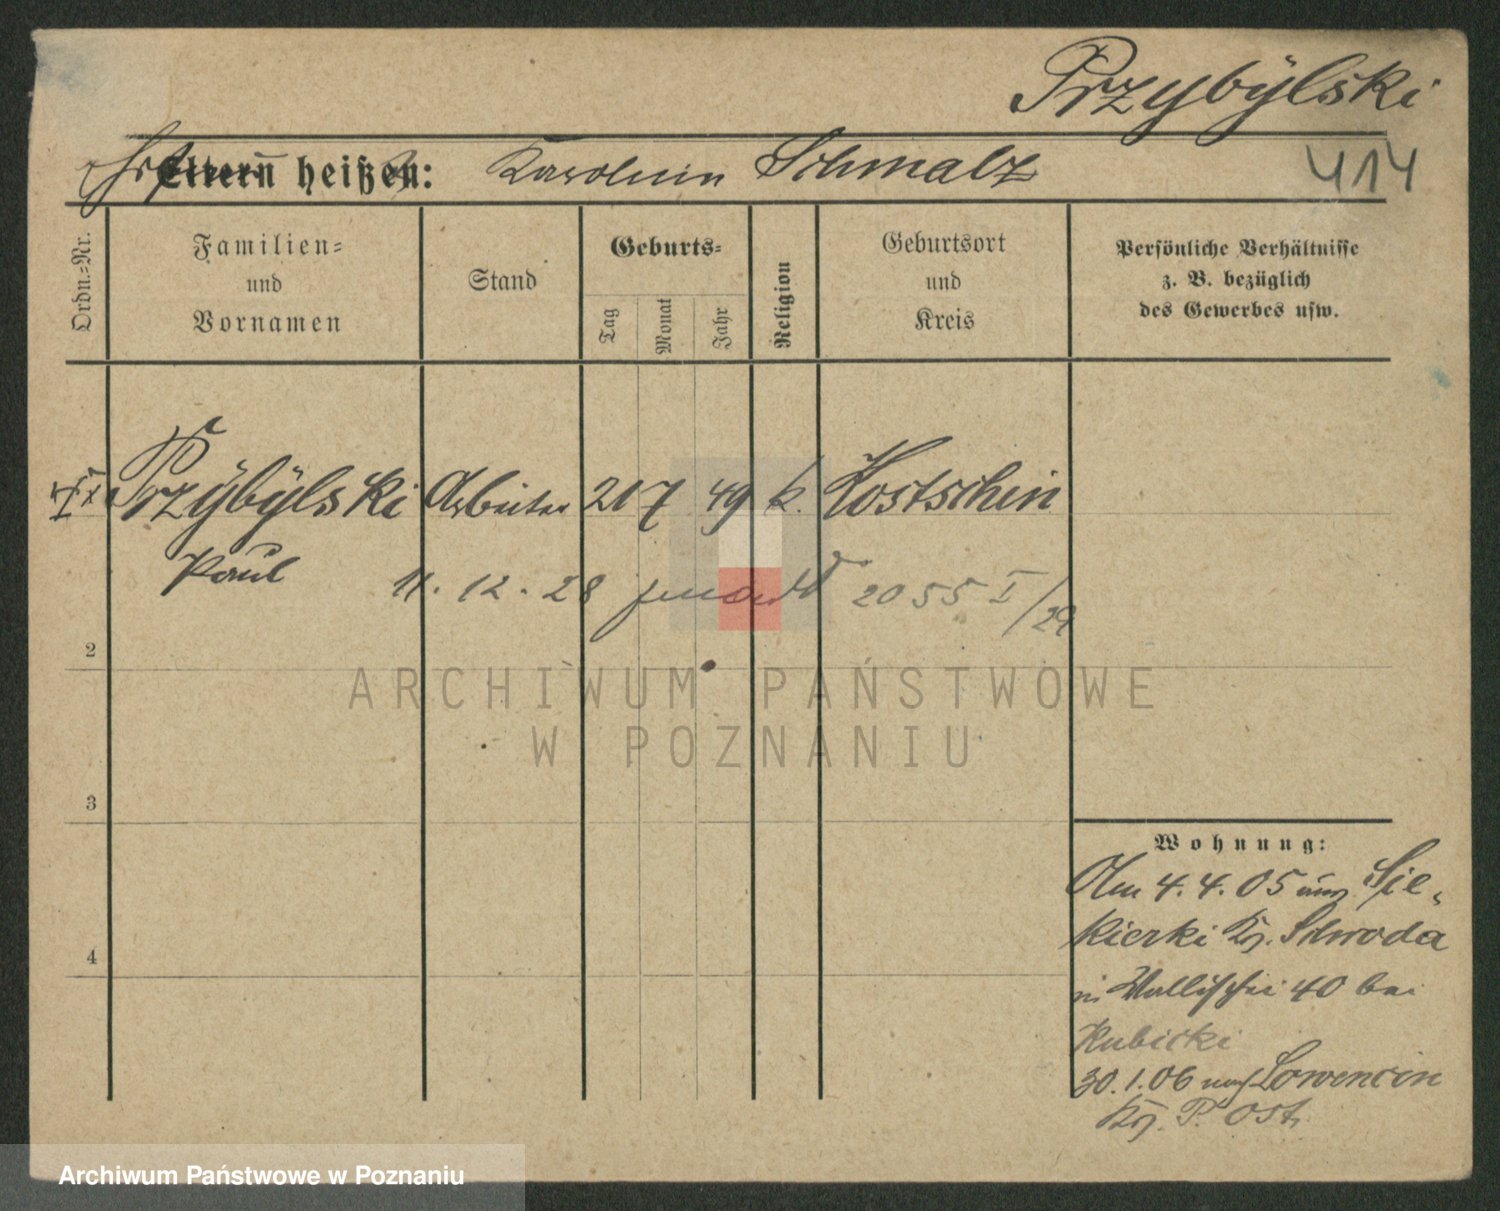 Przybÿlski
Eltern heißen: Karolina Schmalz
414
Ordn.=Nr.
Familien=
und
Vornamen
Stand
Geburts=
Tag
Monat
Jahr
Religion
Geburtsort
und
Kreis
Persönliche Verhältnisse
z. B. bezüglich
des Gewerbes usw.
Przÿbÿlski Arbeiter 21 7 49 k. Kostschin
Paul
11. 12. 28 2055 I/29
2
3
4
Wohnung:
Am 4.4.05 aus Sie-
kierki Kr. Schroda
in Wallischei 40 bei
Kubicki
30.1.06 nach Lowencin
Kr. P. Ost.
ARCHIWUM PAŃSTWOWE
W POZNANIU
Archiwum Państwowe w Poznaniu